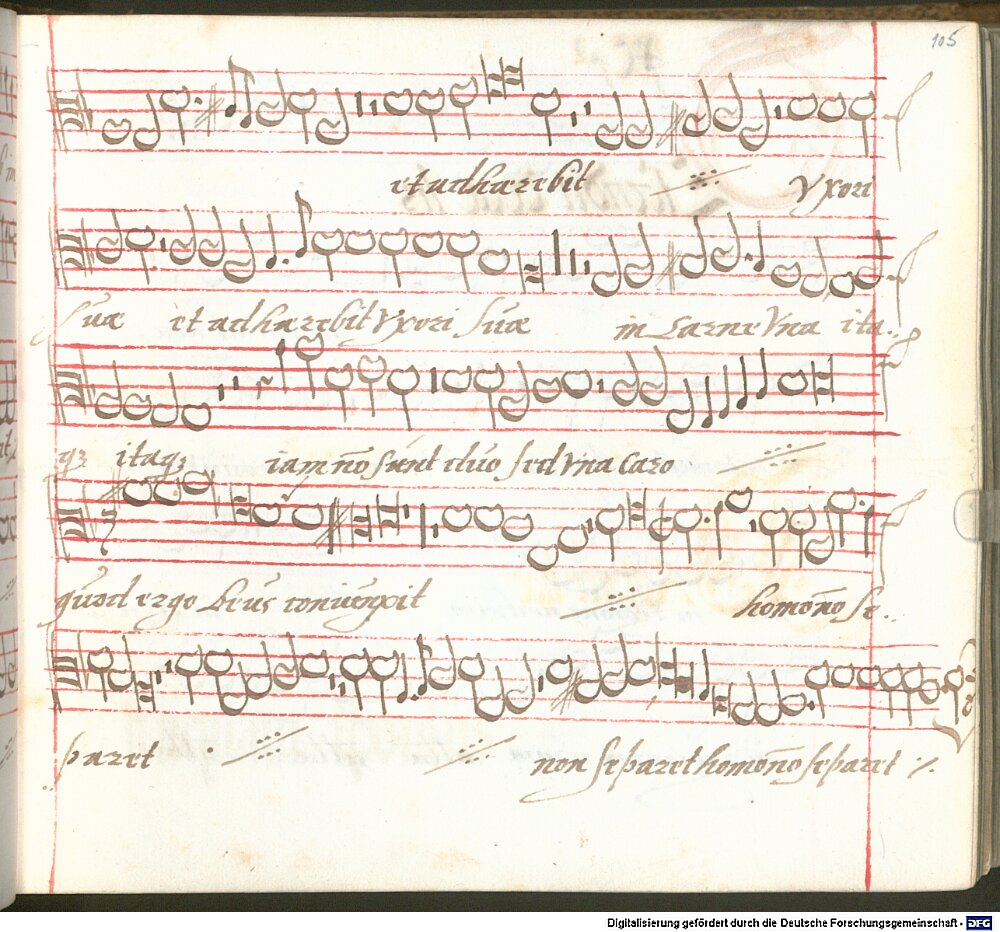 105
et adhærebit Vxori
suæ et adhærebit Vxori suæ in carne Vna ita..
qꝫ itaqꝫ iam nō sunt duo sed Vna caro
quod ergo Deus coniūgxit homo nō se..
paret . non separet homo nō separet ./.
Digitalisierung gefördert durch die Deutsche Forschungsgemeinschaft - DFG